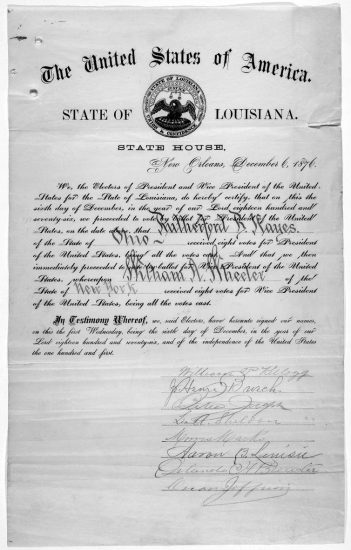 The United States of America.
STATE OF LOUISIANA.
STATE OF LOUISIANA
CONFIDENCE
STATE HOUSE,
New Orleans, December 6, 1876.
We, the Electors of President and Vice President of the United
States for the State of Louisiana, do hereby certify, that on this the
sixth day of December, in the year of our Lord eighteen hundred and
seventy-six, we proceeded to vote by ballot for President of the United
States, on the date above, that Rutherford B. Hayes
of the State of Ohio received eight votes for President
of the United States, being all the votes cast. And that we then
immediately proceeded to vote by ballot for Vice President of the United
States, whereupon William A. Wheeler of the
State of New York received eight votes for Vice President
of the United States, being all the votes cast.
In Testimony Whereof, we, said Electors, have hereunto signed our names,
on this the first Wednesday, being the sixth day of December, in the year of our
Lord eighteen hundred and seventy-six, and of the independence of the United States
the one hundred and first.
William P. Kellogg
J. Henri Burch
Peter Joseph
L. A. Sheldon
Morris Marks
Aaron B. Levissee
Orlando H. Brewster
Oscar Joffrion